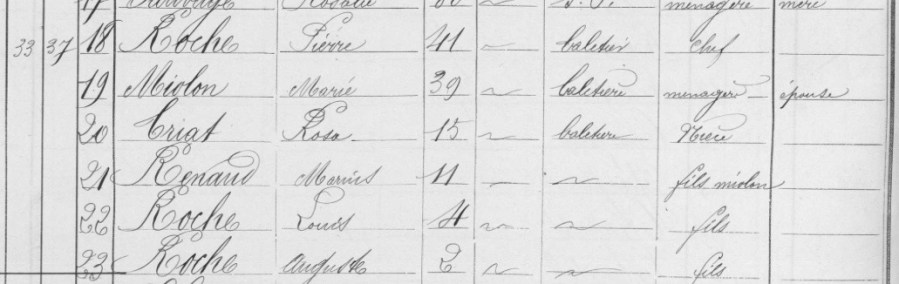 17 Rosalie ménagère mère
33 37 18 Roche Pierre 41 ~ baletier chef
19 Miolon Marie 39 ~ baletière ménagère épouse
20 Criat Rosa 15 ~ baletière Nièce
21 Renaud Marius 11 ~ ~ fils miolon
22 Roche Louis 4 ~ ~ fils
23 Roche Auguste 2 ~ ~ fils